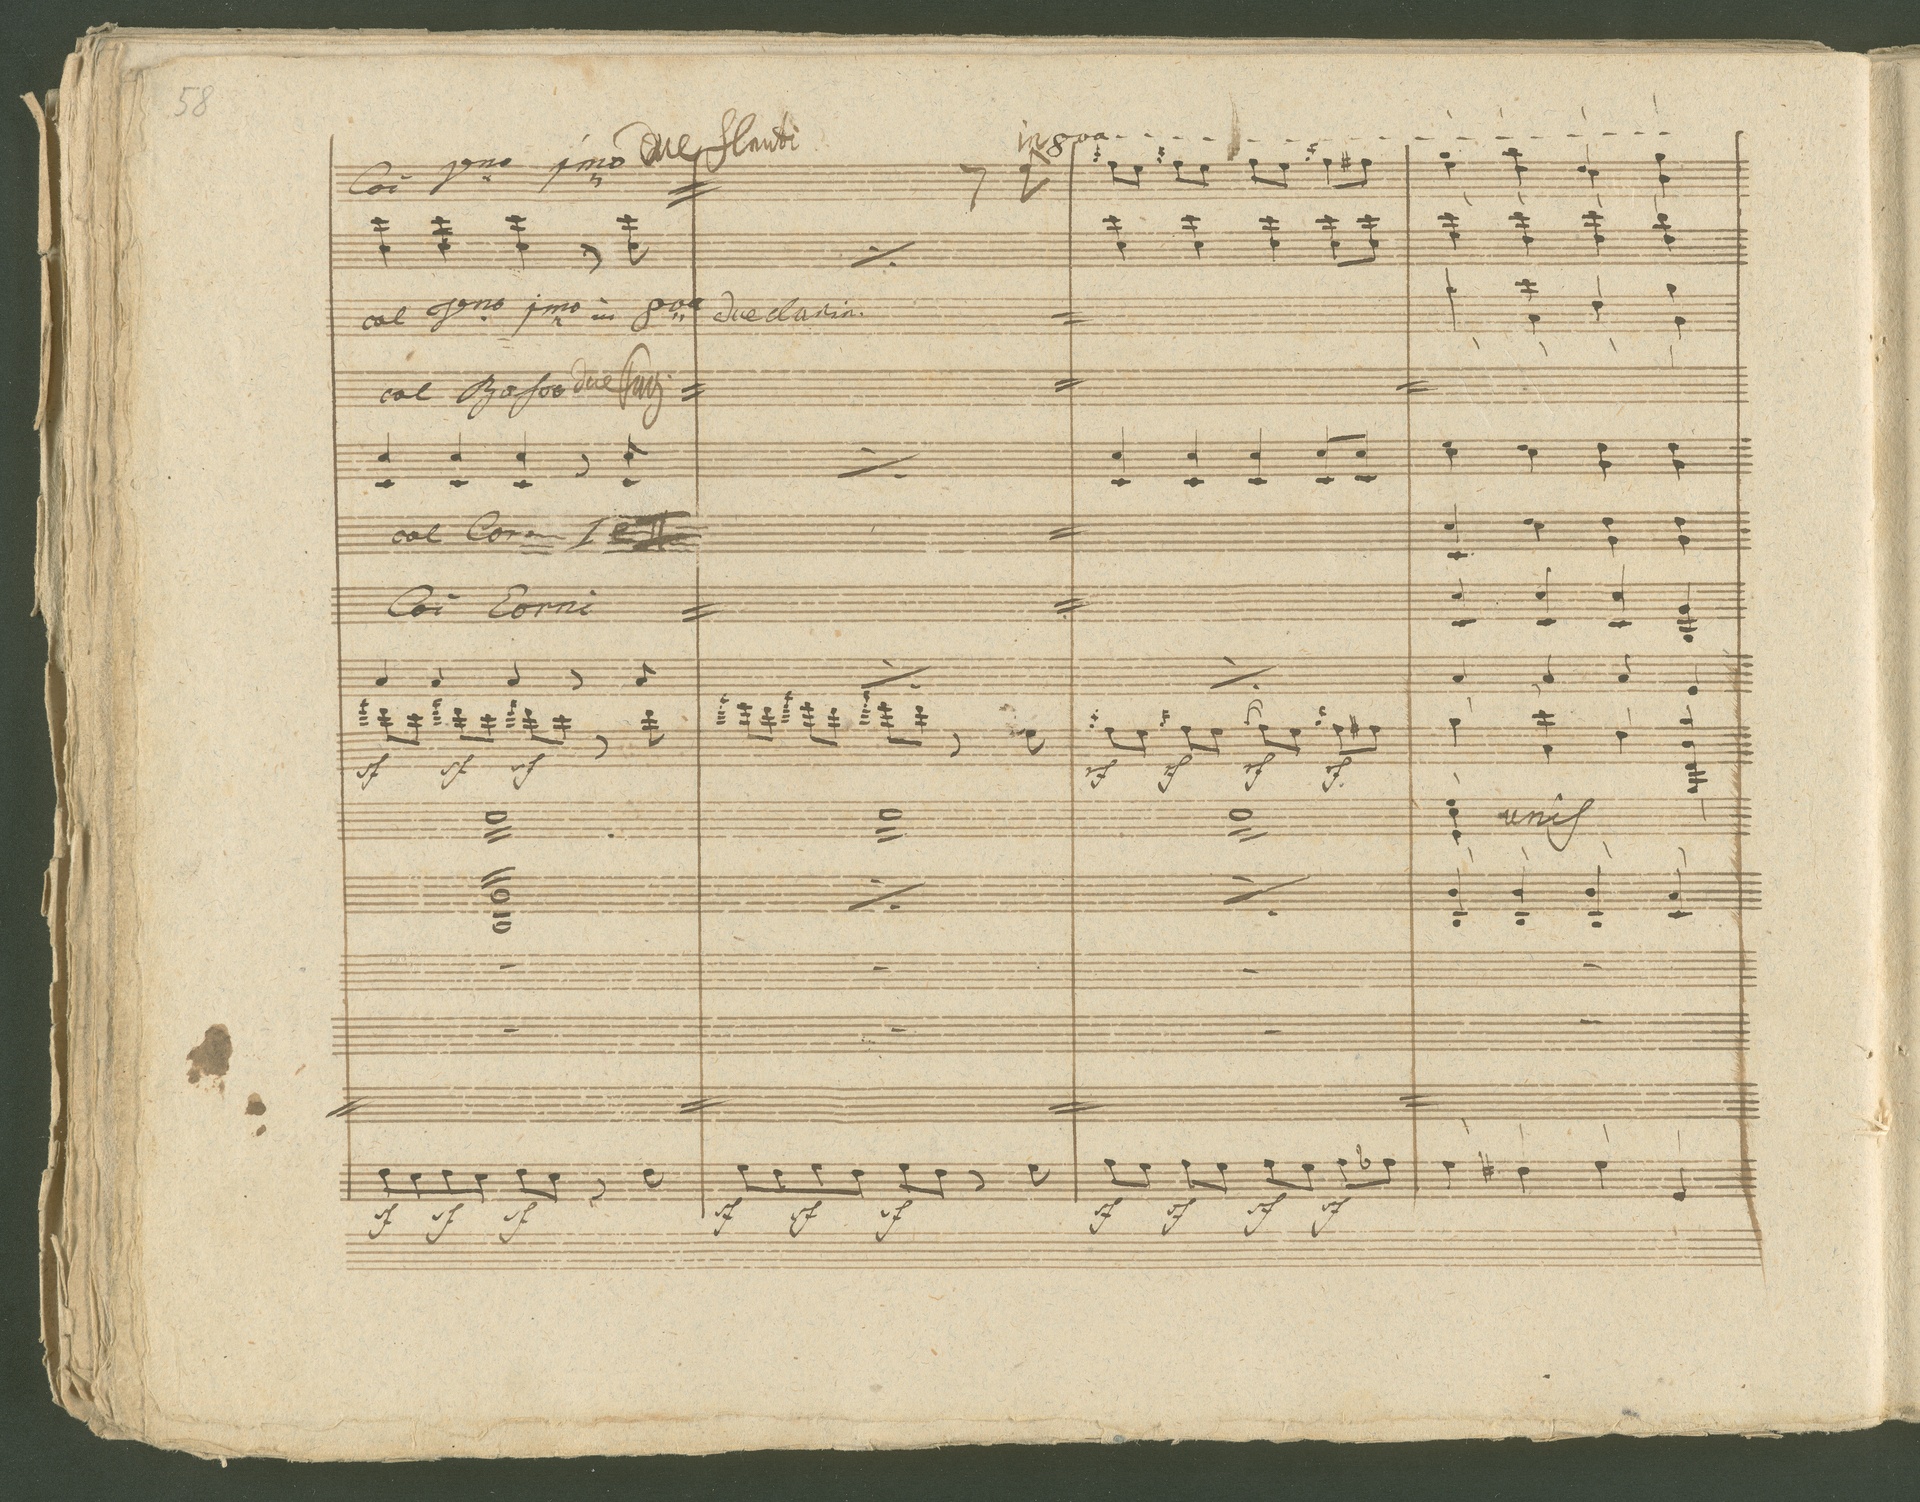 58
Coi Vno jmo Due flauti in 8va
col Vno jmo in 8va due clarin.
col Basso due Fag.
col Corn I
Coi Corni
sf sf sf sf sf sf sf
unis
sf sf sf sf sf sf sf sf sf sf